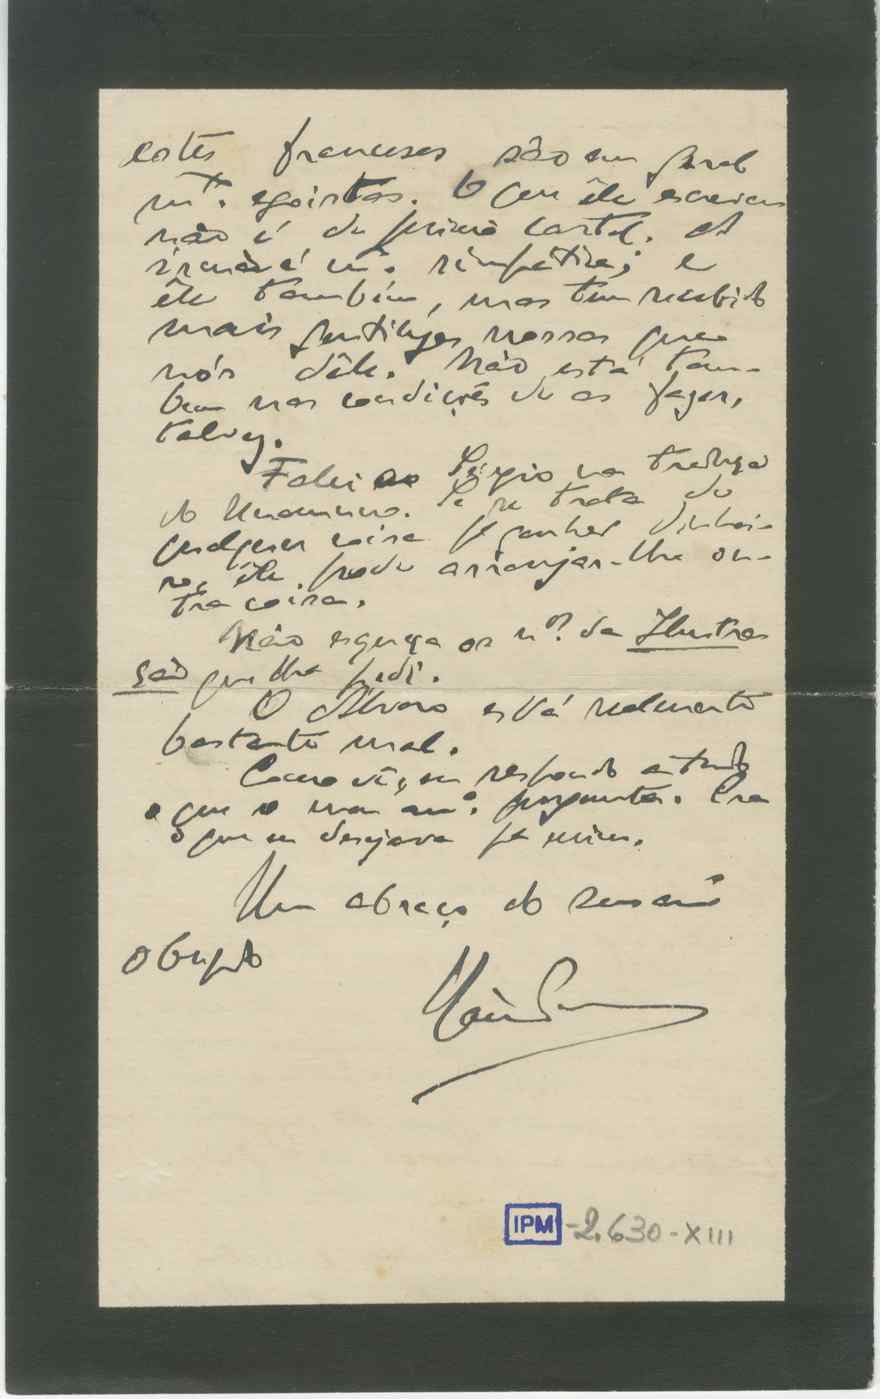 estes franceses são em geral
mto. egoistas. O que êle escreveu
não é de primo cartel. A
irmã é mto. simpática; e
êle tambêm, mas tem recebido
mais gentilezas nossas que
nós dêle. Não está tam-
bem nas condições de as fazer,
talvez.
Falei ao Sérgio na tradução
do Unamuno. Se se trata de
qualquer coisa pa ganhar dinhei-
ro, êle pode arranjar-lhe ou-
tra coisa.
Não esqueça os nos. da Ilustra
ção que lhe pedi.
O Álvaro está realmente
bastante mal.
Como vê, eu respondo a tudo
o que o meu amo. pergunta. Era
o que eu desejava pa mim.
Um abraço do seu amo
obrigado
IPM - 2.630 - XIII